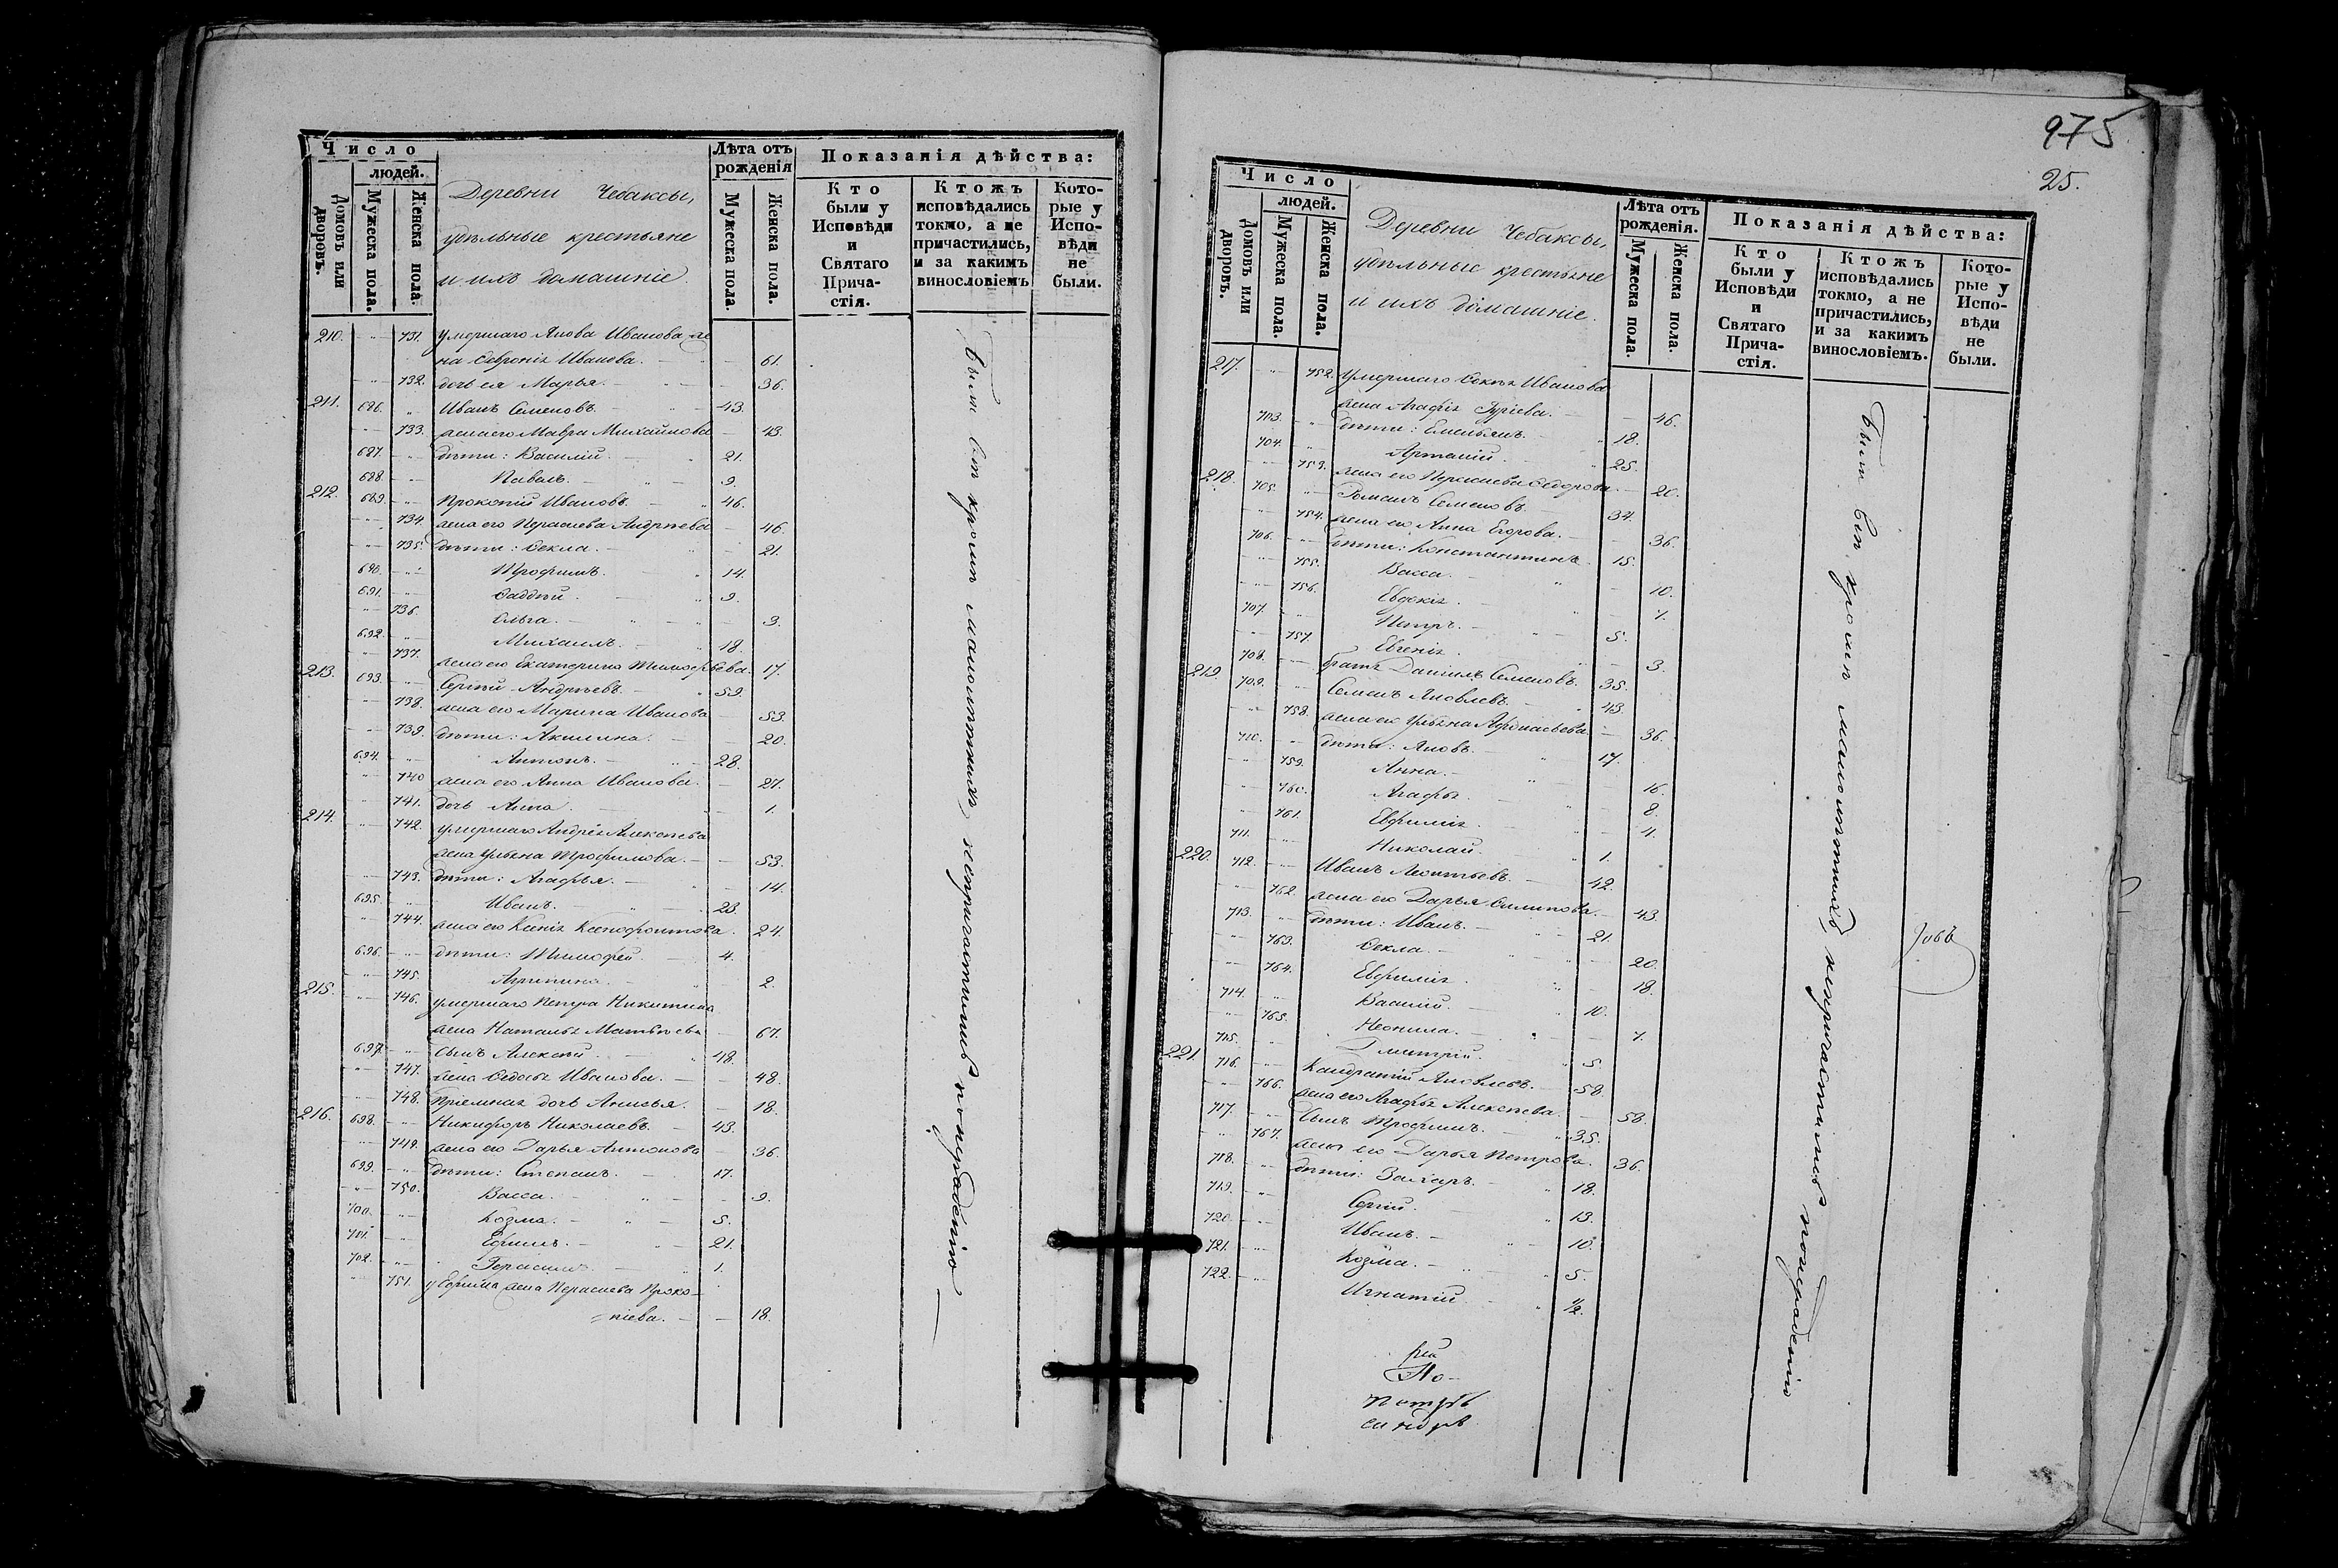 Число
людей.
Домовъ или дворовъ.
Мужеска пола.
Женска пола.
Деревни Чебаксы,
удѣльные крестьяне
и ихъ домашніе.
Лѣта отъ рожденія
Мужеска пола.
Женска пола.
Показанія дѣйства:
Кто были у Исповѣди и Святаго Прича- стія.
Ктожъ исповѣдались токмо, а не причастились, и за какимъ винословіемъ
Кото- рые у Испо- вѣди не были.
210. 731. умершаго Якова Иванова же
на Февронія Иванова. 61.
732. дочь ея Марья. 36.
211. 686. Иванъ Семеновъ. 43.
733. жена его Мавра Михайлова 43.
687. дѣти: Василій. 21.
688. Павелъ. 9.
212. 689. Прокопій Ивановъ. 46.
734. жена его Параскева Андрѣева 46.
735. дѣти: Ѳекла. 21.
690. Трофимъ. 14.
691. Ѳаддѣй. 9.
736. Ольга. 3.
692. Михаилъ. 18.
737. жена его Екатерина Тимофѣева. 17.
213. 693. Сергѣй Андрѣевъ. 59.
738. жена его Марина Иванова 53.
739. дѣти: Акилина. 20.
694. Антонъ. 28.
740 жена его Анна Иванова. 27.
741. дочь Анна. 1.
214. 742. умершаго Андрея Алексѣева
жена Ульяна Трофимова. 53.
743. дѣти: Агафья. 14.
695. Иванъ. 23.
744. жена его Ксенія Ксенофонтова. 24.
696. дѣти: Тимофей. 4.
745. Агрипина. 2.
215. 746. умершаго Петра Никитина
жена Наталья Матвѣева 67.
697. сынъ Алексѣй. 48.
747. жена Ѳедосья Иванова. 48.
748. Пріемная дочь Анисья. 18.
216. 698. Никифоръ Николаевъ. 43.
749. жена его Дарья Антонова 36.
699. дѣти: Степанъ. 17.
750. Васса. 9.
700. Козма. 5.
701. Ефимъ. 21.
702. Герасимъ. 1.
751. у Ефима жена Параскева Проко-
піева. 18.
Были всѣ кромѣ малолѣтнихъ, непричастились по нерадѣнію
975
25.
Число
людей.
Домовъ или дворовъ.
Мужеска пола.
Женска пола.
Деревни Чебаксы,
удѣльные крестьяне
и ихъ домашніе.
Лѣта отъ рожденія.
Мужеска пола.
Женска пола.
Показанія дѣйства:
Кто были у Исповѣди и Святаго Прича- стія.
Ктожъ исповѣдались токмо, а не причастились, и за какимъ винословіемъ.
Кото- рые у Испо- вѣди не были.
217. 752. умершаго Иванова
жена Агафія Гуріева. 46.
703. дѣти: Емельянъ. 18.
704. Артемій. 25.
753. жена его Параскева Ѳедорова. 20.
218. 705. Романъ Семеновъ. 34.
754. жена его Анна Егорова. 36.
706. дѣти: Константинъ. 15.
755. Васса. 10.
756. Евдокія. 7.
707. Петръ. 5.
757. Евгенія. 3.
708. братъ Даніилъ Семеновъ. 35.
219. 709. Семенъ Яковлевъ. 43.
758. жена его Ульяна Афонасьева. 36.
710. дѣти: Яковъ. 17.
759. Анна. 16.
760. Агафья. 8.
761. Евфимія. 4.
711. Николай. 1.
220. 712. Иванъ Леонтьевъ. 42.
762. жена его Дарья Филипова. 43.
713. дѣти: Иванъ. 21.
763. Ѳекла. 20.
764. Евфимія. 18.
714. Василій. 10.
765. Неонила. 7.
715. Дмитрій. 5.
221. 716. Кандратій Яковлевъ. 58.
766. жена его Агафья Алексѣева. 58.
717. сынъ Трофимъ. 35.
767. жена его Дарья Петрова. 36.
718. дѣти: Захаръ. 18.
719. Сергій. 13.
720. Иванъ. 10.
721. Козма. 5.
722. Игнатій. ½.
Были всѣ кромѣ малолѣтнихъ, непричастились по нерадѣнію